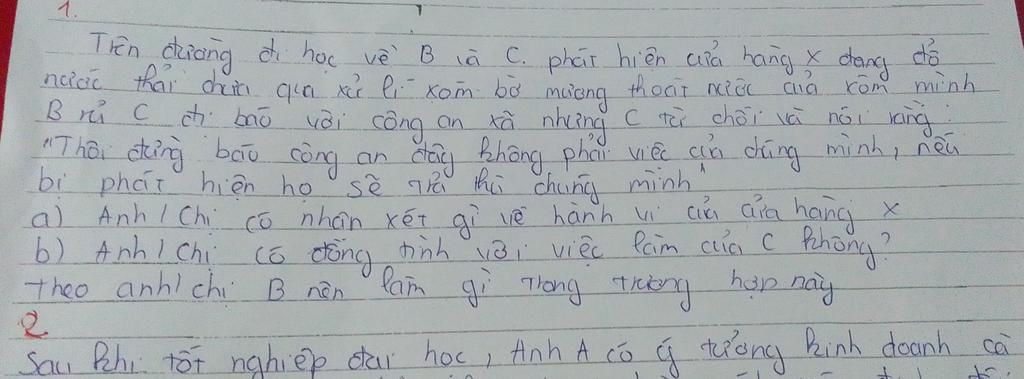 1.
Trên đường đi học về B và C. phát hiện cửa hàng X đang đổ
nước thải chưa qua xử lí xuống bờ mương thoát nước của xóm mình
B rủ C đi báo với công an xã nhưng C từ chối và nói rằng:
"Thôi đừng báo công an đây không phải việc của chúng mình, nếu
bị phát hiện họ sẽ trả thù chúng mình"
a) Anh / Chị có nhận xét gì về hành vi của cửa hàng X
b) Anh / Chị có đồng tình với việc làm của C không?
Theo anh / chị B nên làm gì trong trường hợp này
2
Sau khi tốt nghiệp đại học, Anh A có ý tưởng kinh doanh cà